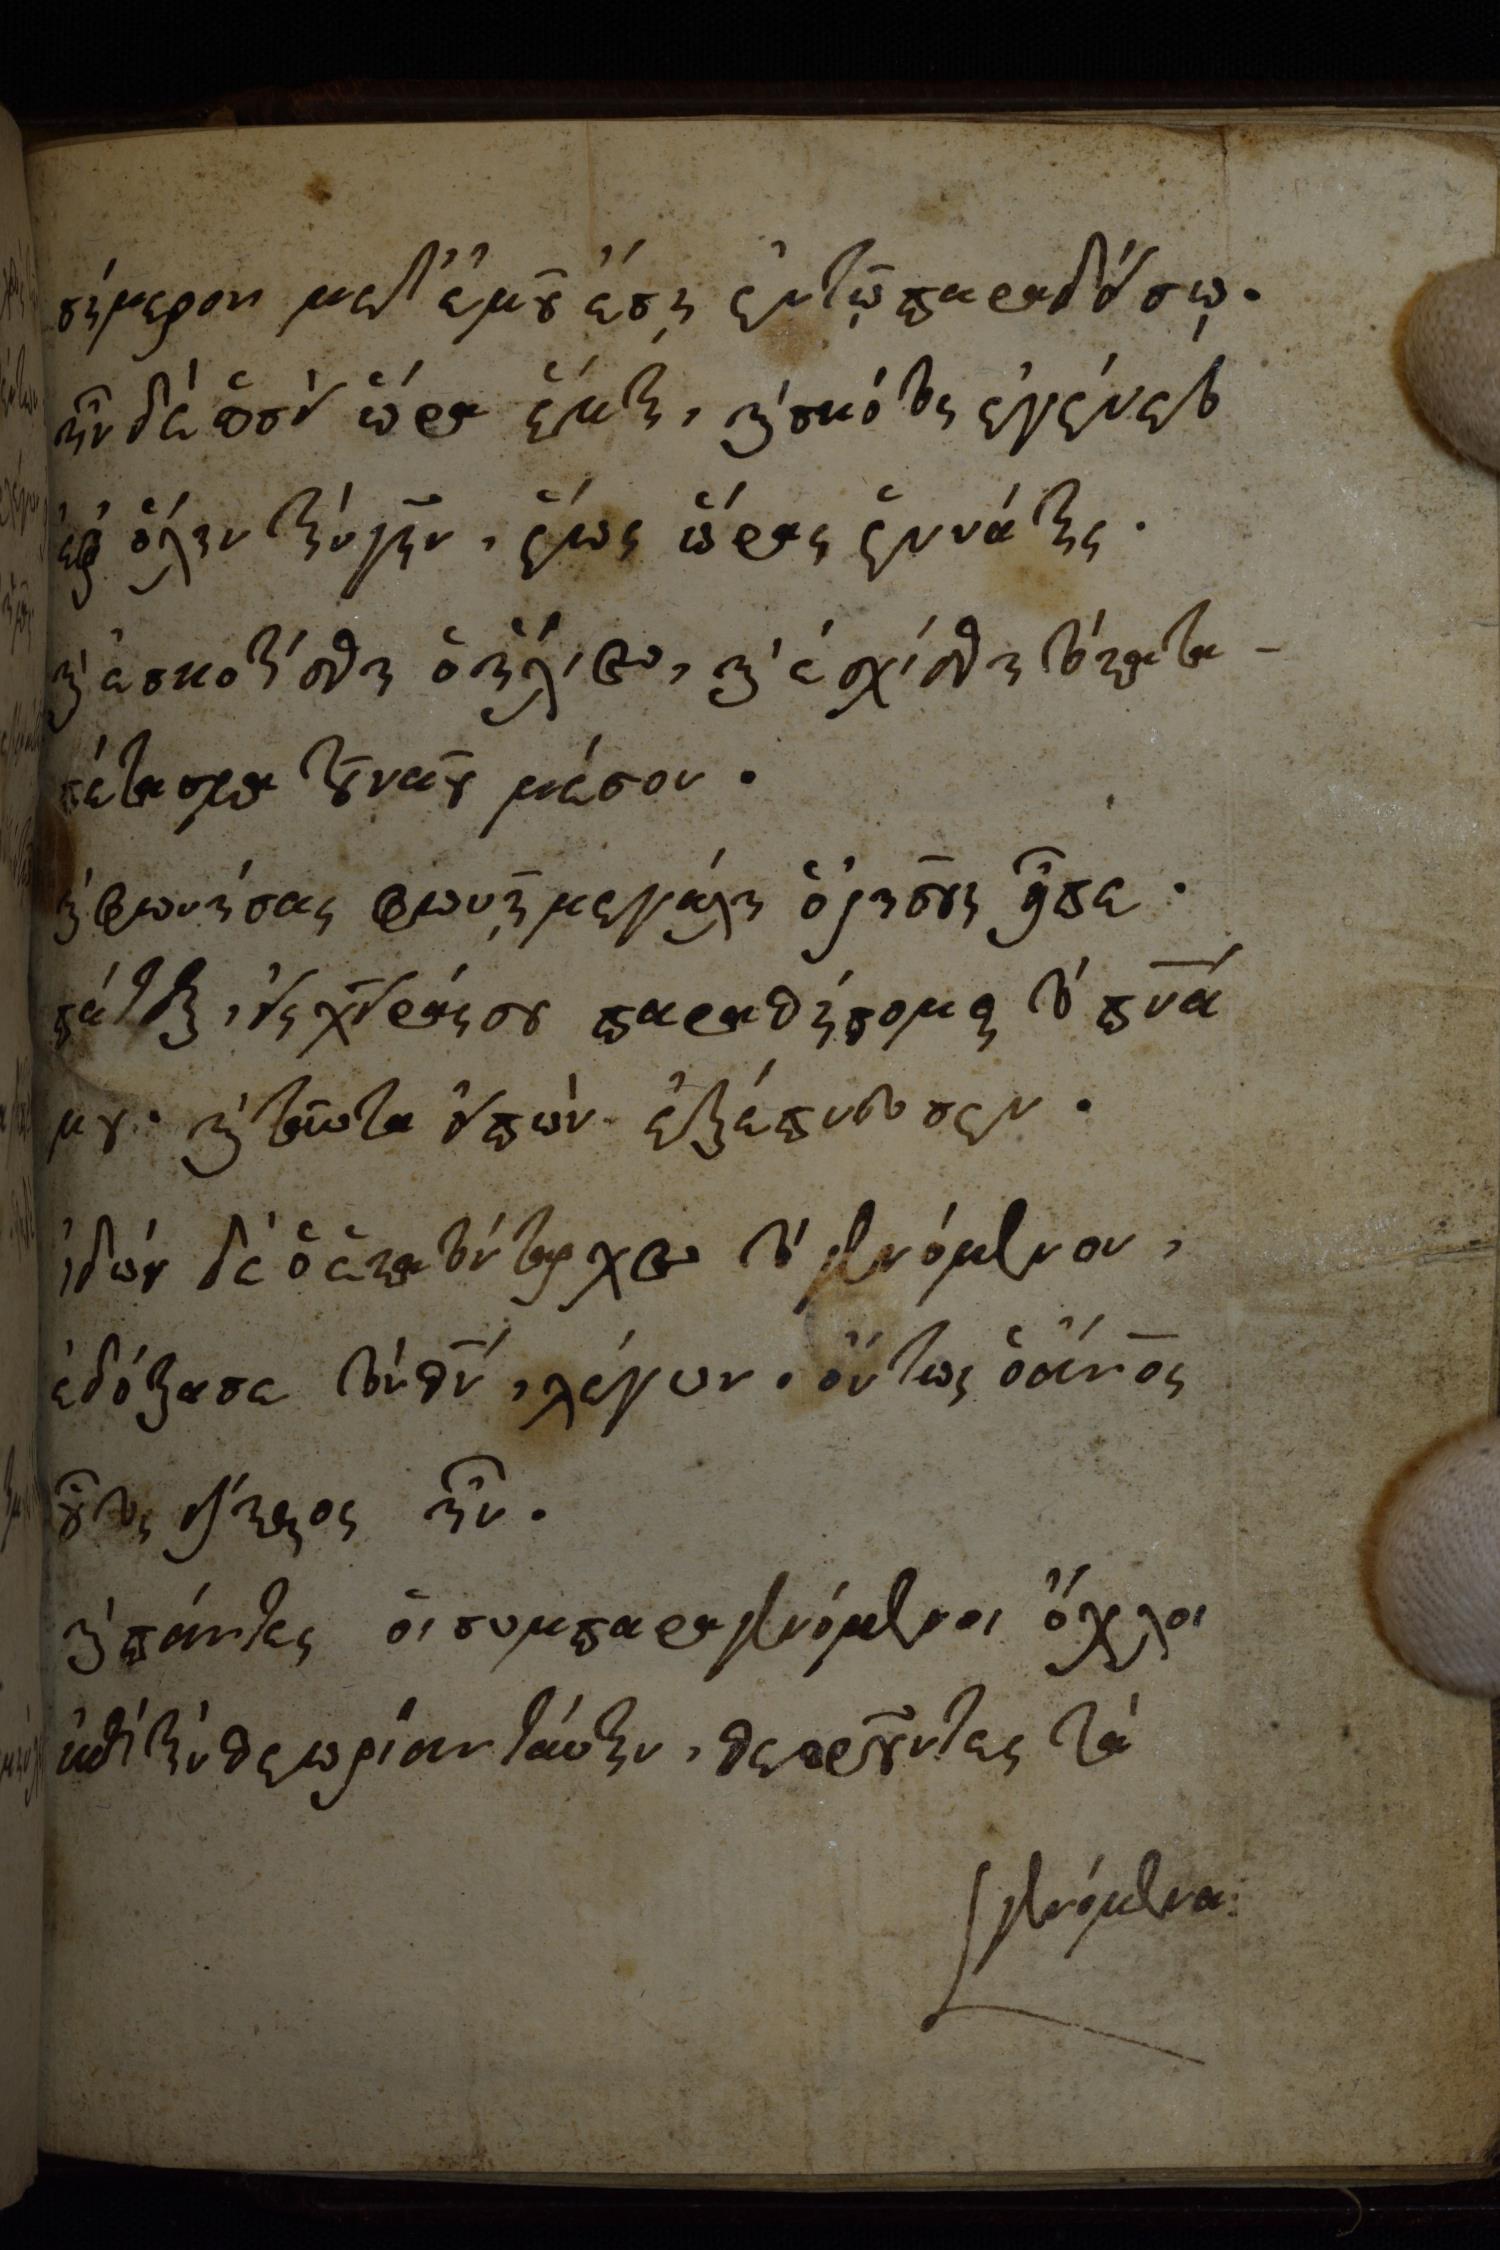 σήμερον μετ' ἐμοῦ ἔσῃ ἐν τῷ παραδείσῳ.
ἦν δὲ ὡσεὶ ὥρα ἕκτη, καὶ σκότος ἐγένετο
ἐφ' ὅλην τὴν γῆν, ἕως ὥρας ἐννάτης.
καὶ ἐσκοτίσθη ὁ ἥλιος, καὶ ἐσχίσθη τὸ κατα-
πέτασμα τοῦ ναοῦ μέσον.
καὶ φωνήσας φωνῇ μεγάλῃ ὁ ἰησοῦς εἶπε.
πάτερ, εἰς χεῖράς σου παραθήσομαι τὸ πνά
μου. καὶ ταῦτα εἰπὼν ἐξέπνευσεν.
ἰδὼν δὲ ὁ ἑκατόνταρχος τὸ γενόμενον,
ἐδόξασε τὸν θν, λέγων. ὄντως ὁ ἄνος
οὗτος δίκαιος ἦν.
καὶ πάντες οἱ συμπαραγενόμενοι ὄχλοι
ἐπὶ τὴν θεωρίαν ταύτην, θεωροῦντες τὰ
γενόμενα: